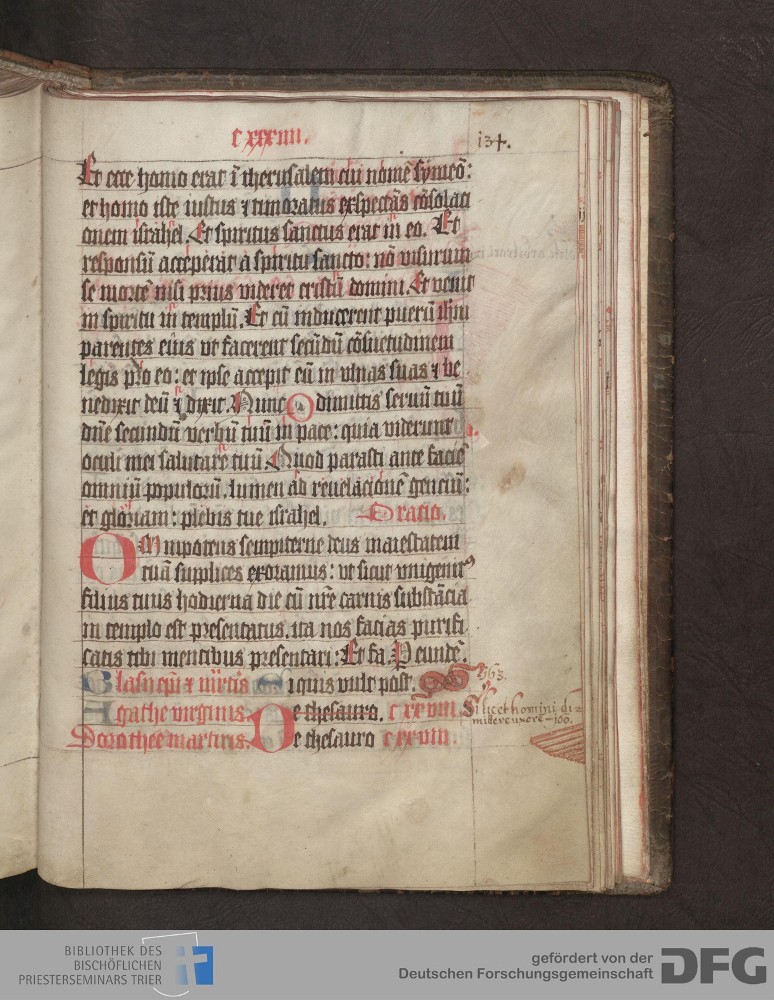 cxxxiiii.
134.
Et ecce homo erat ī iherusalem cui nomē symeō:
et homo iste iustus ⁊ timoratus exspectās cōsolati
onem israhel. Et spiritus sanctus erat in eo. Et
responsū acceperat a spiritu sancto: nō visurum
se mortē nisi prius videret cristū domini. Et venit
in spiritu in templū. Et cū inducerent puerū ihm
parentes eius vt facerent secūdū cōsuetudinem
legis pro eo: et ipse accepit eū in vlnas suas ⁊ be
nedixit deū ⁊ dixit. Nunc dimittis seruū tuū
dn̄e secundū verbū tuū in pace: quia viderunt
oculi mei salutare tuū. Quod parasti ante faciē
omniū populorū. lumen ad reuelacionē genciū:
et gloriam: plebis tue israhel. Oratio.
Omnipotens sempiterne deus maiestatem
tuā supplices exoramus: vt sicut vnigenitꝰ
filius tuus hodierna die cū nr̄e carnis substācia
in templo est presentatus. ita nos facias purifi
catis tibi mentibus presentari: Et fa. P eundē.
Blasii ep̄i ⁊ mr̄tis Si quis vult post. 163.
Agathe virginis De thesauro. cxxviii
Dorothee martiris. De thesauro cxxviii.
Si licet homini di=
mittere uxore — 100.
BIBLIOTHEK DES
BISCHÖFLICHEN
PRIESTERSEMINARS TRIER
gefördert von der
Deutschen Forschungsgemeinschaft DFG